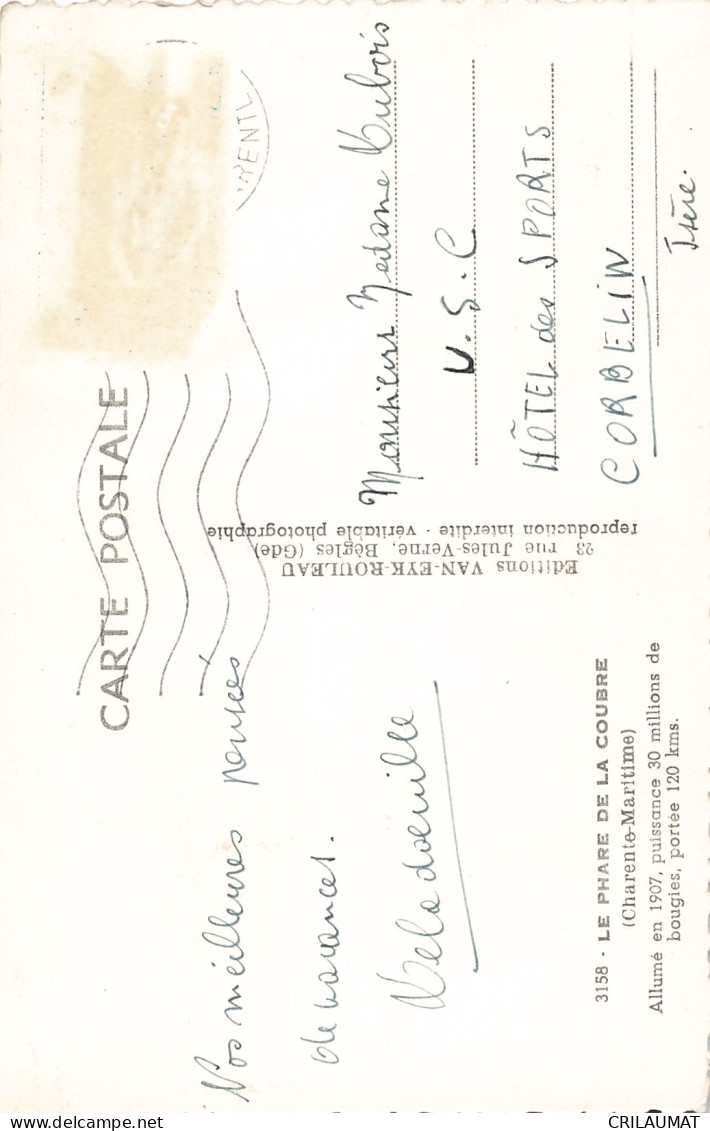 CARTE POSTALE
Nos meilleures pensées
de vacances.
3158 - LE PHARE DE LA COUBRE
(Charente-Maritime)
Allumé en 1907, puissance 30 millions de
bougies, portée 120 kms.
Editions VAN-EYK-ROULEAU
23 rue Jules-Verne, Bègles (Gde)
reproduction interdite - véritable photographie
Monsieur Madame Dubois
U.S.C
HÔTEL des SPORTS
CORBELIN
Isère.
CRILAUMAT